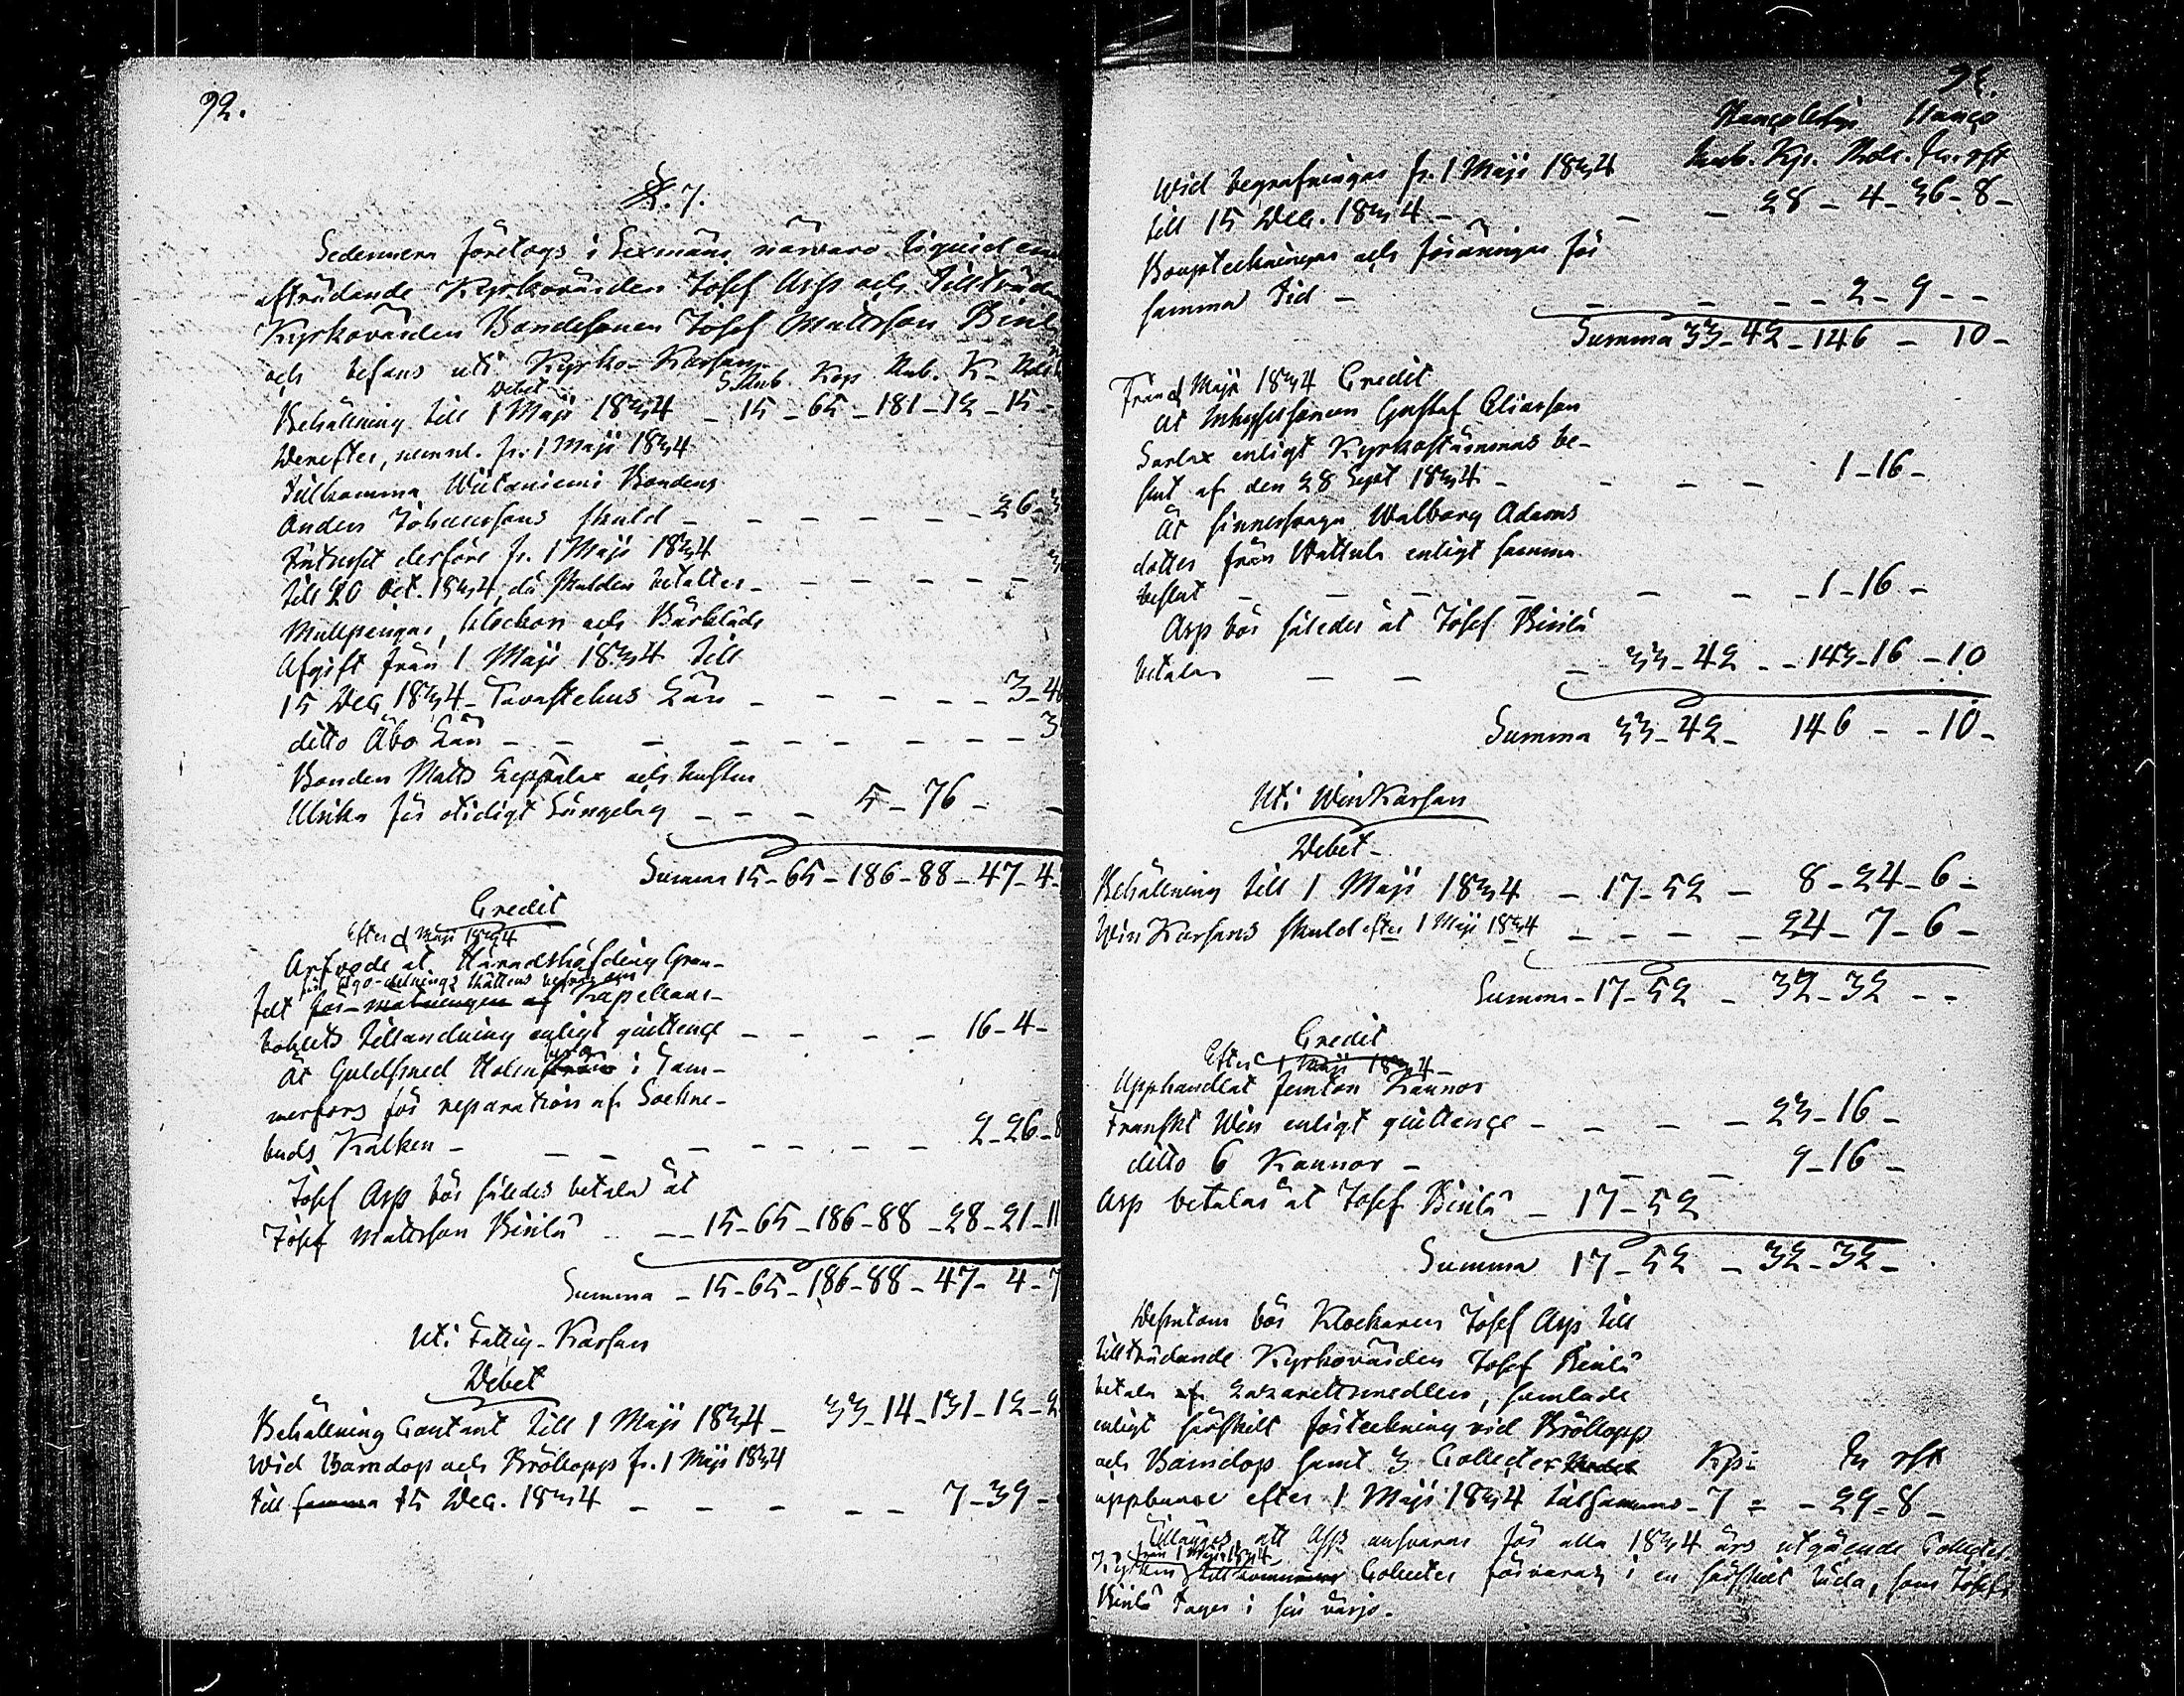 92.
§. 7.
Sedermera företogs i Sexmäns närvaro liquid
afträdande Kyrkovärden Josef Asp och
Kyrkovärden Bondesonen Josef Mattsson
och befans uti Kyrko-Kassan
Debet S. Rub. Kop Rub. K.
Behållning till 1 Maji 1834 - 15 - 65 - 181 - 12 - 15 -
Derefter, nemnl. fr. 1 Maji 1834
tillkomma Wiitaniemi Bondens
Anders Johanssons skuld - - - - - - 26 -
Intresset derföre fr. 1 Maji 1834
till 20 Oct. 1834, då skulden betaltes - - - - - -
Mullpengar, klockor och Bårkläds
Afgift från 1 Maji 1834 till
15 Dec. 1834 - Tavastehus Län - - - - - 3 - 4
ditto Åbo Län - - - - - - - - - 3
Bonden Matts Seppälax och hustru
Ulrika för otidigt Sängelag - - - 5 - 76 - -
Summa 15 - 65 - 186 - 88 - 47 - 4 -
Credit
Efter d. 1 Maji 1834
Arfvode åt Häradshöfding Gran-
felt för Kapellans-
bohlets enligt quittence - - - - 16 - 4 -
Åt Guldsmed i Tam-
merfors för reparation af Sockne-
buds Kalken - - - - - - - 2 - 26 - 8
Josef Asp bör således betala åt
Josef Mattsson - - 15 - 65 - 186 - 88 - 28 - 21 - 11
Summa - 15 - 65 - 186 - 88 - 47 - 4 - 7
Uti Fattig-Kassan
Debet
Behållning Contant till 1 Maji 1834 - 33 - 14 - 131 - 12 - 2
Wid Barndop och Bröllopp fr. 1 Maji 1834
till samma 15 Dec. 1834 - - - - - 7 - 39 -
Rub. Kp. Rdr. sk. rst
Wid begrafningar fr. 1 Maji 1834
till 15 Dec. 1834 - - - 28 - 4 - 36 - 8 -
Bouptekningar och föräningar för
samma tid - - - - - 2 - 9 - -
Summa 33 - 42 - 146 - 10 -
Från d. 1 Maji 1834 Credit
Åt Inhysessonen Gustaf Eliasson
Sarlax enligt Kyrkostämmas be-
slut af den 28 Sept 1834 - - - - 1 - 16 -
Åt sinnessvaga Walborg Adams
dotter från Wattula enligt samma
beslut - - - - - - - 1 - 16 -
Asp bör således åt Josef
betala - - - 33 - 42 - - 143 - 16 - 10
Summa 33 - 42 - 146 - - 10 -
Uti WinKassan
Debet -
Behållning till 1 Maji 1834 - 17 - 52 - 8 - 24 - 6 -
WinKassans skuld efter 1 Maji 1834 - - - - 24 - 7 - 6 -
Summa - 17 - 52 - 32 - 32 - -
Credit
Efter 1 Maji 1834 -
Upphandlat femton Kannor
Franskt Win enligt quittence - - - - 23 - 16 -
ditto 6 Kannor - - - 9 - 16 -
Asp betalar åt Josef - 17 - 52
Summa 17 - 52 - 32 - 32 -
Dessutom bör Klockaren Josef Asp till
tillträdande Kyrkovärden Josef
betala af Lazarettsmedlen, samlade
enligt särskilt förtekning vid Bröllopp
och Barndop samt 3 Collecter Kp. sk rst
uppburne efter 1 Maji 1834 tillsammans - 7 = - 29 = 8 -
att Asp ansvarar för alla 1834 års utgående Collecter.
från 1 Maji 1834
Kyrkans Collecter förvaras i en särskilt låda, som Josef
tager i sin vårjo.